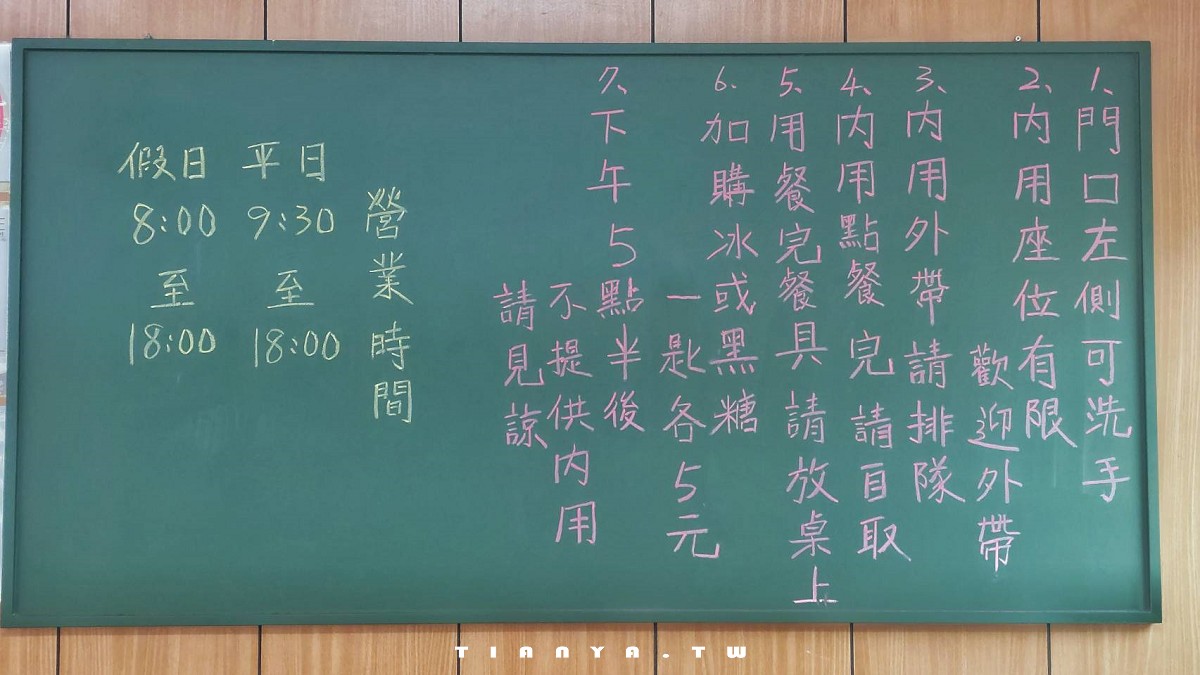 1、門口左側可洗手
2、內用座位有限
歡迎外帶
3、內用外帶請排隊
4、內用點餐完請自取
5、用餐完餐具請放桌上
6、加購冰或黑糖
一匙各5元
7、下午5點半後
不提供內用
請見諒
營業時間
平日
9:30
至
18:00
假日
8:00
至
18:00
TIANYA.TW